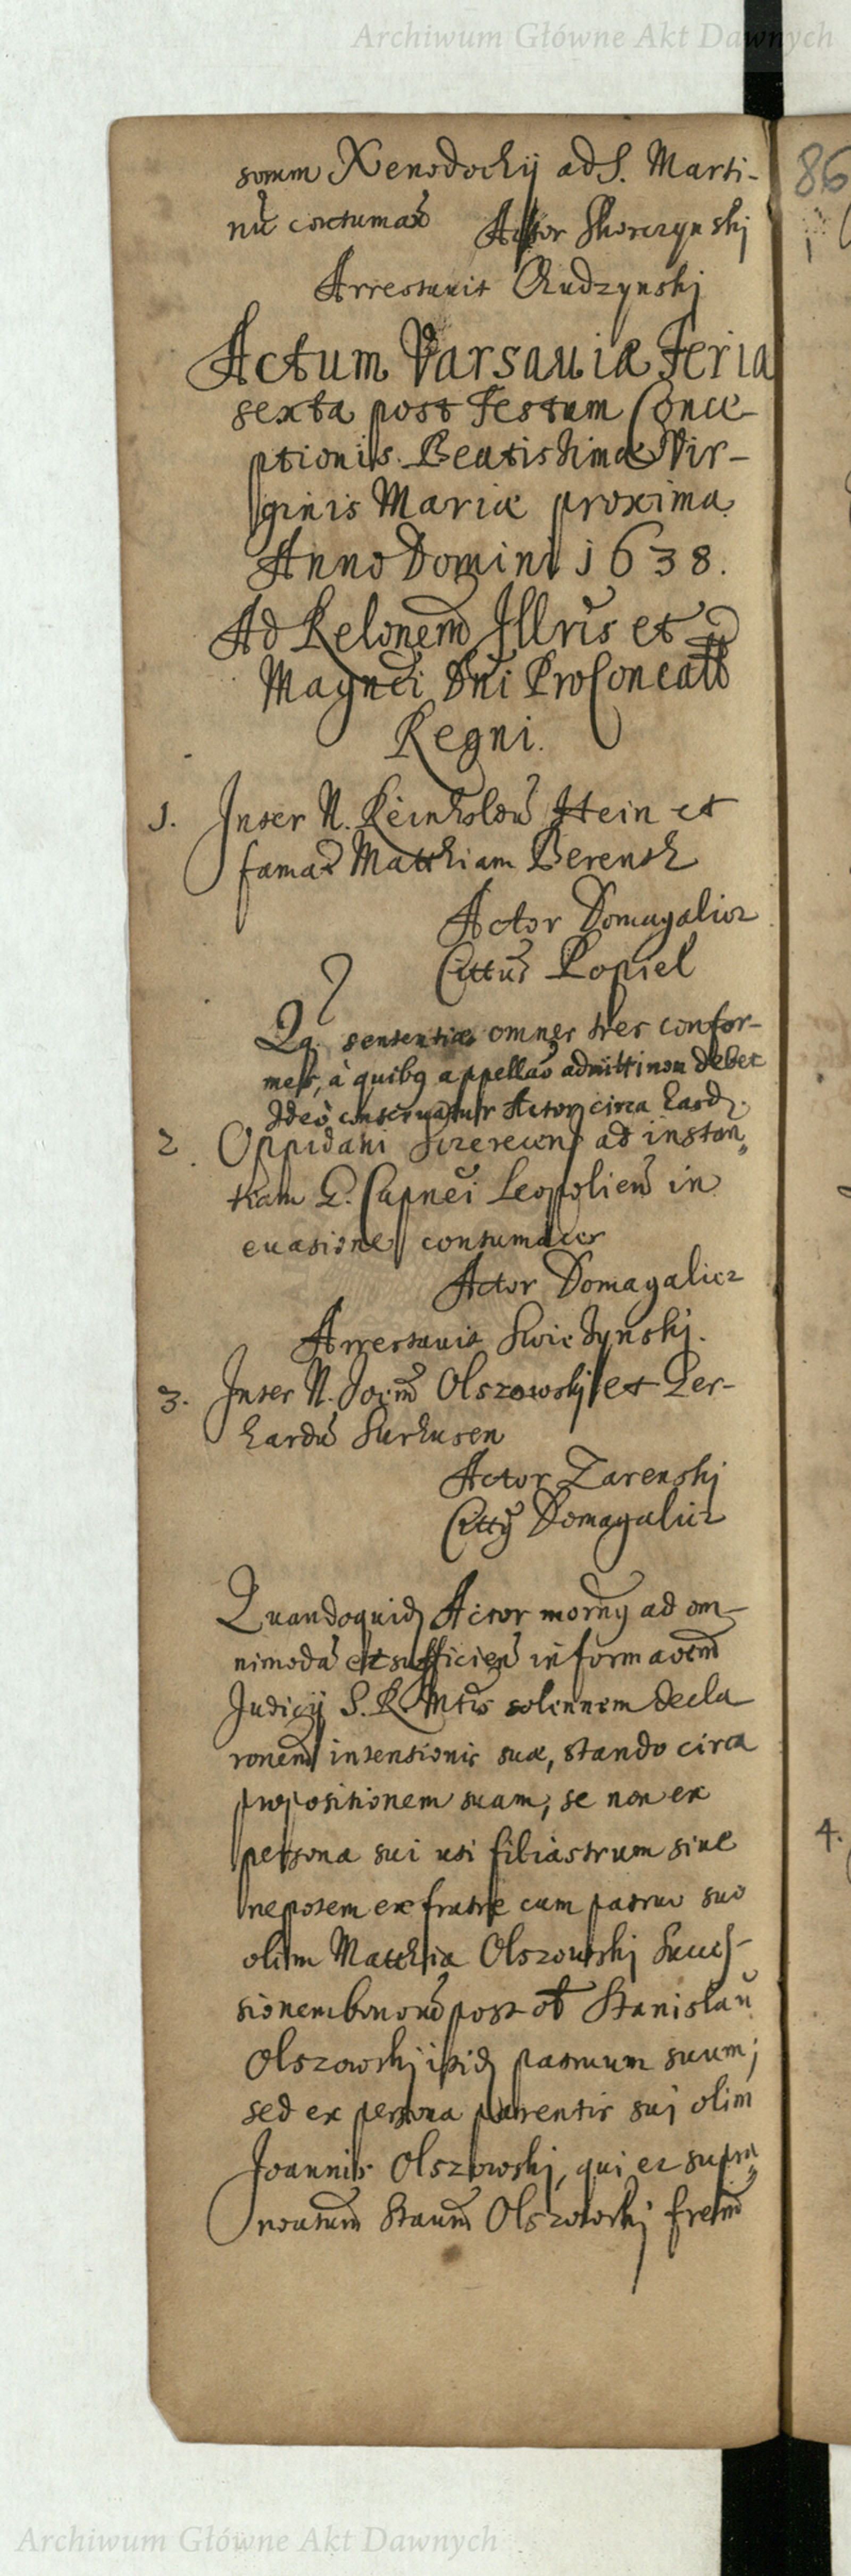 Archiwum Główne Akt Dawnych
86
sorum Xenodochij ad S. Marti-
nũ contumax Actor Skorczynskj
Arrestauit Rudzynskj
Actum Varsauiæ Feria
sexta post Festum Conce-
ptionis Beatissimæ Vir-
ginis Mariæ proxima
Anno Domini 1638.
Ad Relonem Illris et
Magnci Dni ProCancell
Regni.
1. Inter N. Reinholdũ Stein et
famat Matthiam Berensk
Actor Domagalicz
Cittus Popiel
Qa sententiæ omnes tres confor-
mes, à quibq appellao admitti non debet
Ideò conseruatur Actor circa easdz.
2. Oppidani ad instan„
tiam Leopolien in
euasione contumaces
Actor Domagalicz
Arrestauit Swiezynskj.
3. Inter N. Joem Olszowskj et Ger-
hardũ Surhusen
Actor Zarenskj
Citty Domagalicz
Quandoquidz Actor ad om-
nimodã et sufficien informaoem
Judicij S. R. Mtis solennem decla
ronem intentionis suæ, stando circa
propositionem suam, se non ex
persona sui uti filiastrum siue
nepotem ex fratre cum patruo suo
olim Matthia Olszowskj Succes-
sionem bonorũ post ob Stanislaũ
Olszowskj itidz patruum suum;
sed ex persona parentis suj olim
Joannis Olszowskj, qui et supra„
noatum Staum Olszowskj frem
4.
Archiwum Główne Akt Dawnych